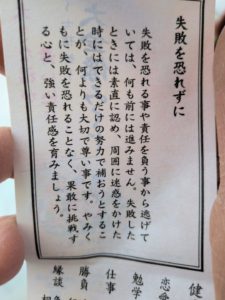 失敗を恐れずに
失敗を恐れる事や責任を負う事から逃げて
いては、何も前には進みません。失敗した
ときには素直に認め、周囲に迷惑をかけた
時にはできるだけの努力で補おうとするこ
とが、何よりも大切で尊い事です。やみく
もに失敗を恐れることなく、果敢に挑戦す
る心と、強い責任感を育みましょう。
健
恋愛
勉学
仕事
勝負
縁談